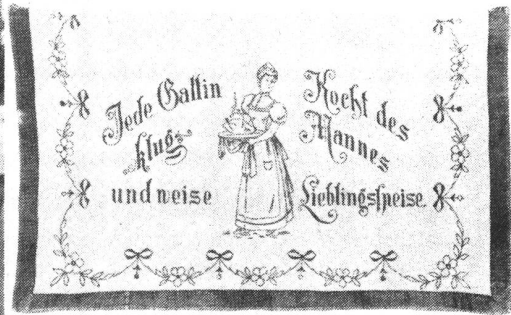 Jede Gattin
klug
und weise
Kocht des
Mannes
Lieblingsspeise.